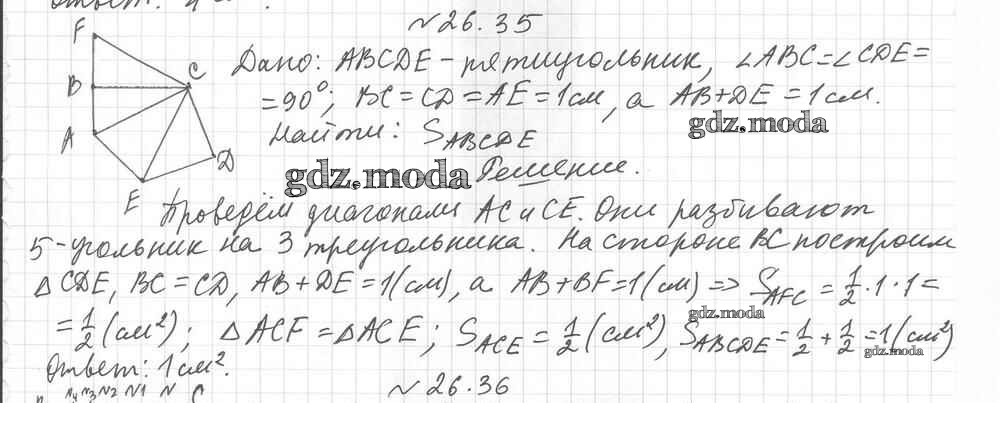 № 26.35
F
B
A
C
D
E
Дано: ABCDE – пятиугольник, ∠ABC = ∠CDE =
= 90°; BC = CD = AE = 1 см, а AB + DE = 1 см.
Найти: S_ABCDE
gdz.moda
gdz.moda
Решение.
Проведём диагонали AC и CE. Они разбивают
5-угольник на 3 треугольника. На стороне BC построим
△ CDE, BC = CD, AB + DE = 1 (см), а AB + BF = 1 (см) => S_AFC = 1/2 · 1 · 1 =
gdz.moda
= 1/2 (см²); △ ACF = △ ACE; S_ACE = 1/2 (см²), S_ABCDE = 1/2 + 1/2 = 1 (см²)
gdz.moda
Ответ: 1 см².
№ 26.36